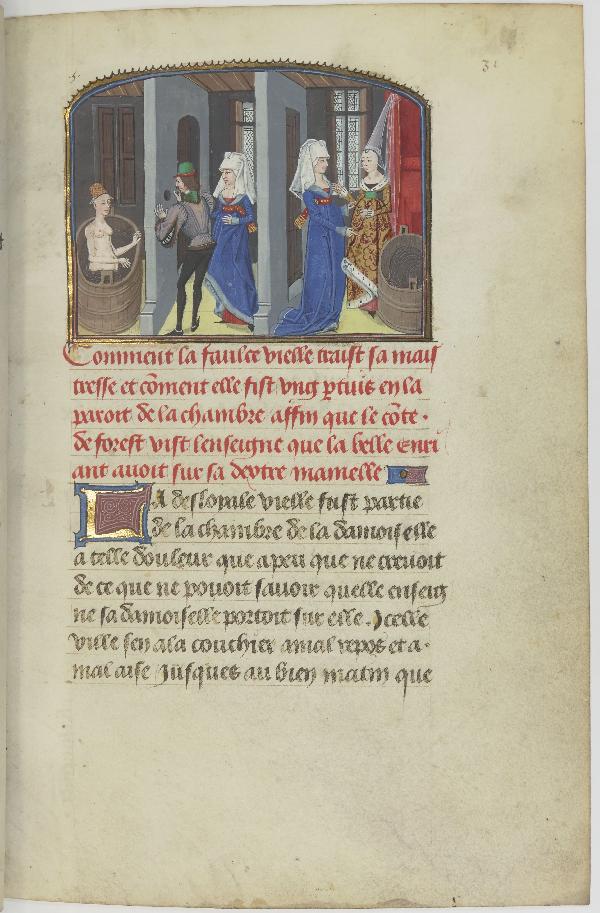 31
Comment la faulce vielle traist sa mais
tresse et cõment elle fist vng ptuis en la
paroit de la chambre affin que le cõte.
de forest vist lenseigne que la belle Enri
ant auoit sur sa dextre mamelle
LA desloyale vielle fust partie
de la chambre de la damoiselle
a telle douleur que a peu que ne creuoit
de ce que ne pouoit sauoir quelle enseig
ne sa damoiselle portoit sur elle. Icelle
vielle sen ala couchier a mal repos et a.
mal aise Jusques au bien matin que